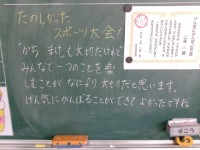 たのしかった
スポーツ大会!
かち まけも大切だけれど
みんなで一つのことを楽
しむことが なにより大切だと思います。
げん気にがんばることができて よかったですね